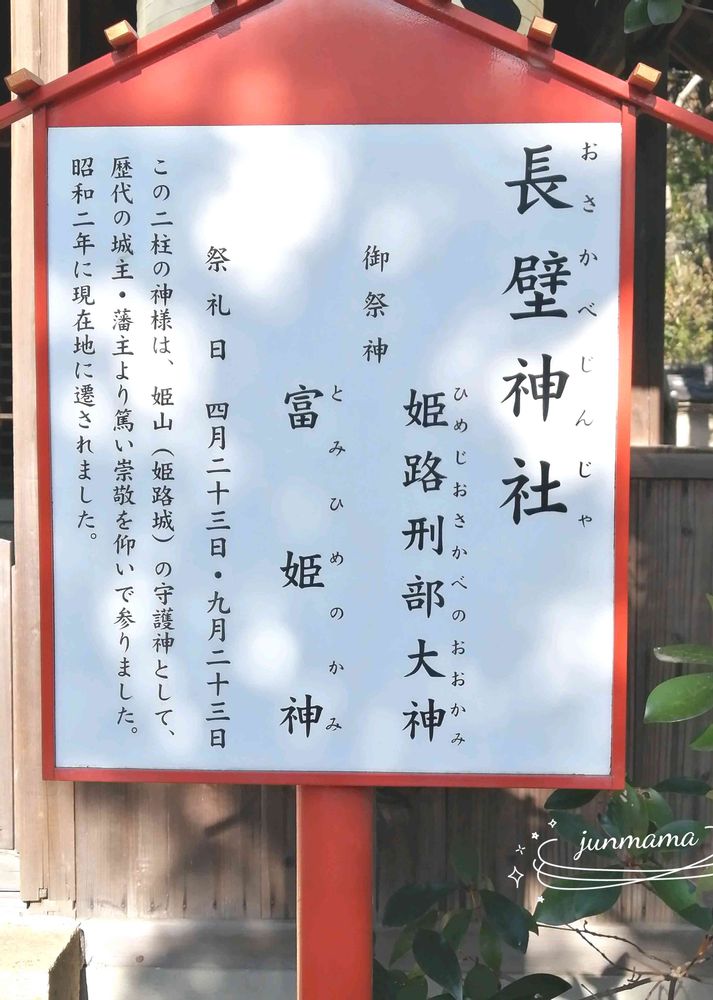 長壁神社
おさかべじんじゃ
御祭神
姫路刑部大神
ひめじおさかべのおおかみ
富姫神
とみひめのかみ
祭礼日 四月二十三日・九月二十三日
この二柱の神様は、姫山（姫路城）の守護神として、
歴代の城主・藩主より篤い崇敬を仰いで参りました。
昭和二年に現在地に遷されました。
junmama